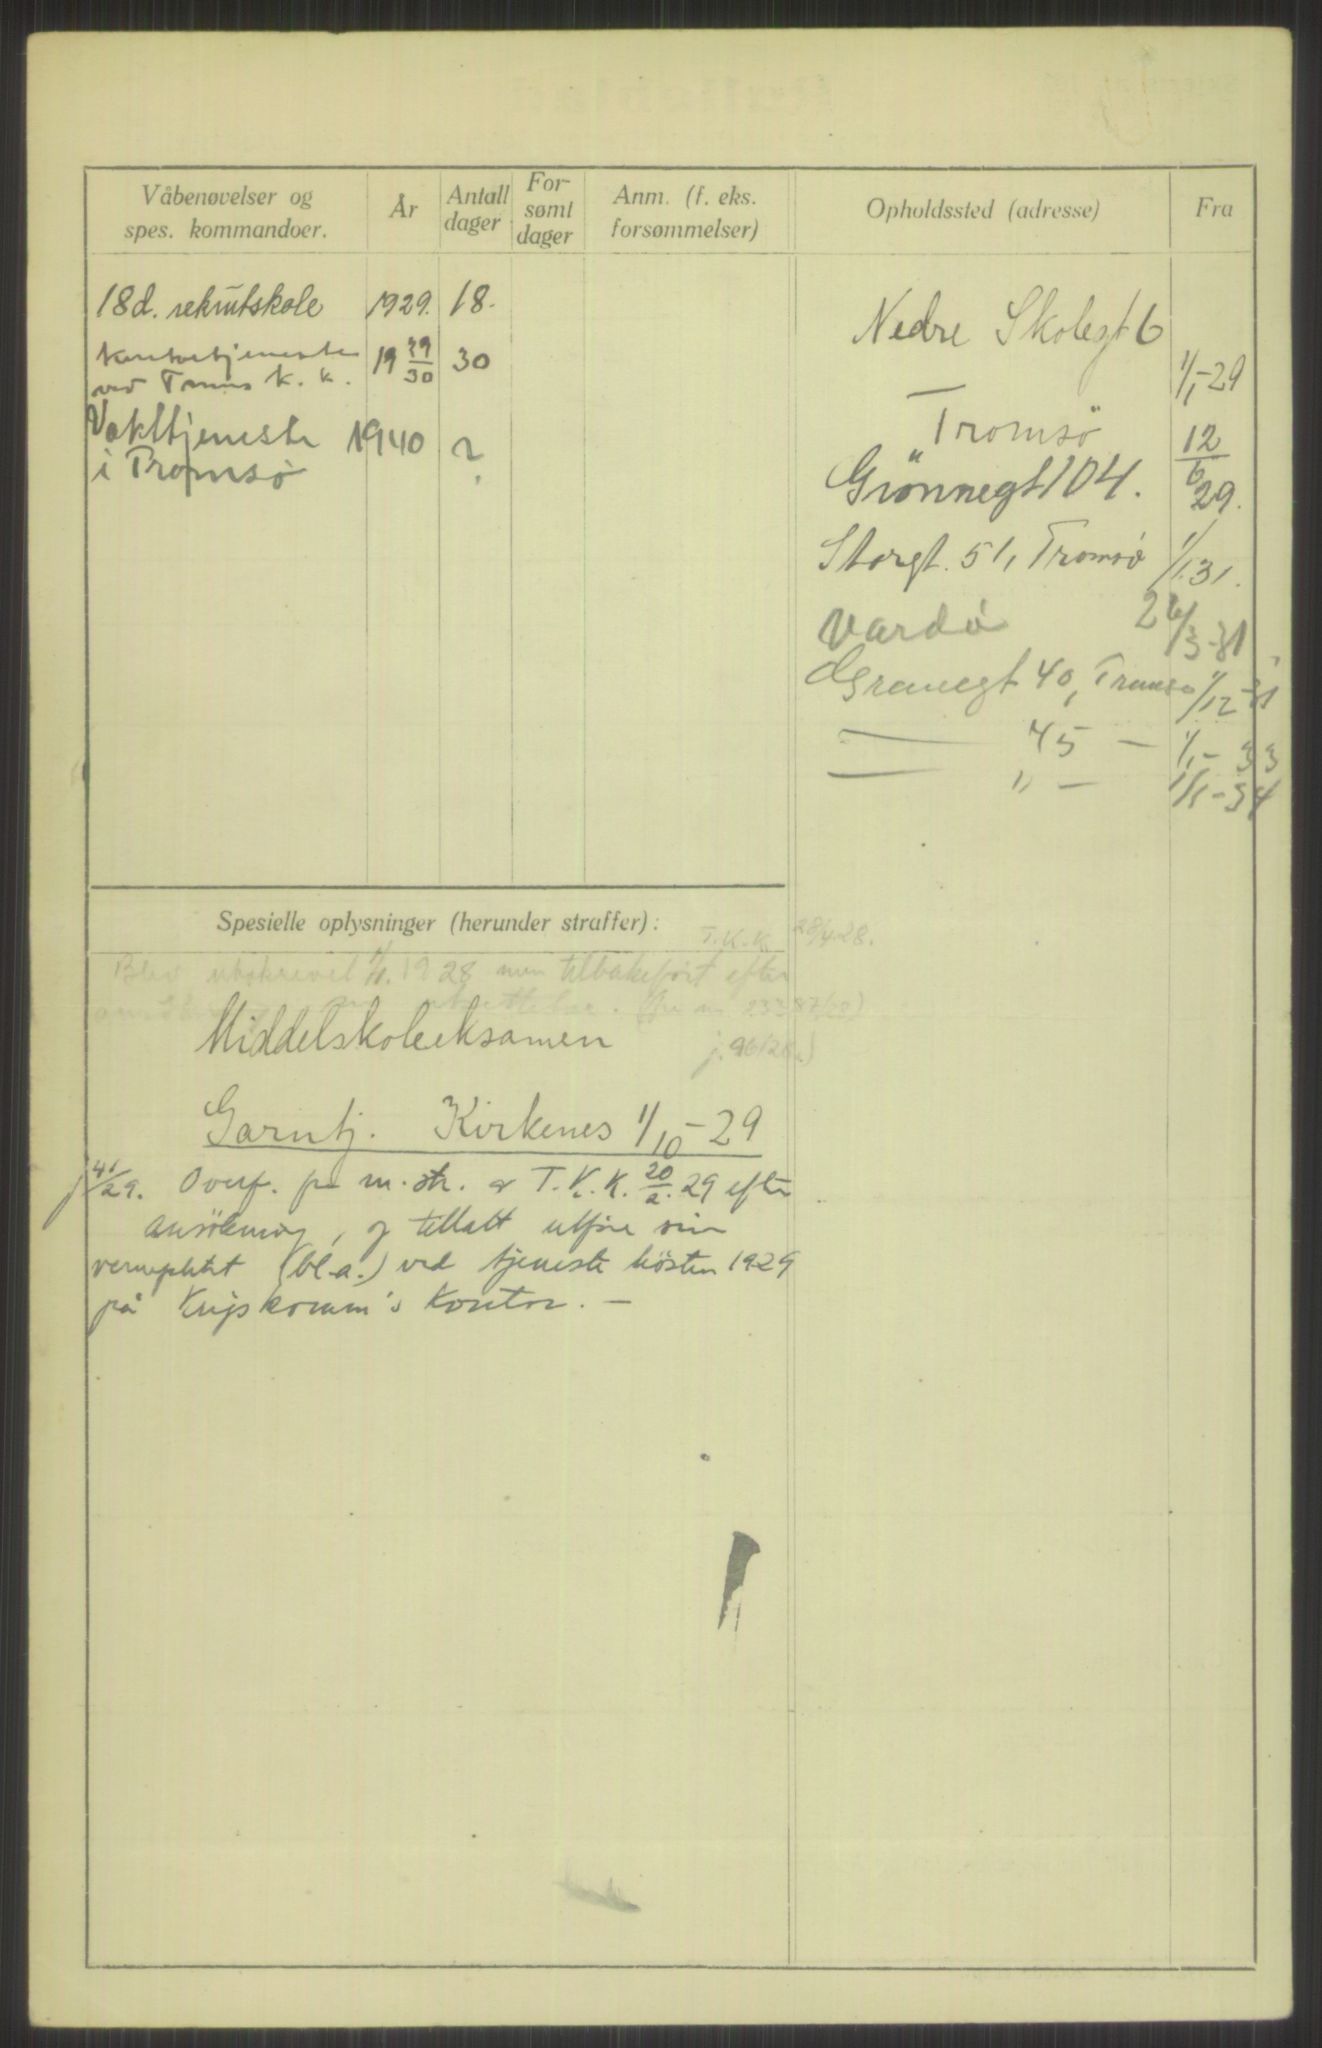 Våbenøvelser og
spes. kommandoer.
År
Antall
dager
For-
sømt
dager
Anm. (f. eks.
forsømmelser)
Opholdssted (adresse)
Fra
18d. rekrutskole 1929. 18.
Kontortjeneste
ved Troms K. K. 19 29/30 30
Vakttjeneste 1940 ?
i Tromsø
Nedre Skolegt 6
1/1-29
Tromsö
Grönnegt 104. 12/6 29.
Storgt. 51, Tromsö 1/1.31.
Vardö 26/3-31
Grønnegt 40, Tromsø 1/12-31
— 45 — 1/1-33
— " — 1/1-34
Spesielle oplysninger (herunder straffer):
T.K.K. 28/4-28.
Blev utskrevet 1/1. 1928 men tilbakeført efter
Middelskoleeksamen
Garntj. Kirkenes 1/10-29
j 41/29. Overf. fra m.str. av T.K.K. 20/2.29 efter
ansökning, og tillatt utföre sin
verneplikt (bl.a.) ved tjeneste hösten 1929
på Krigskomm's Kontor. —